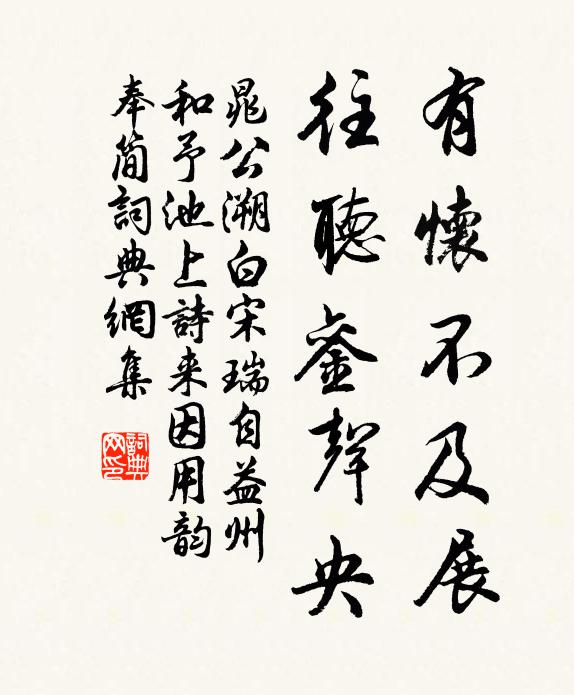 有懷不及展
往聽銮聲央
晁公溯白宋瑞自益州
和予池上詩来因用韵
奉簡詞典網集
詞典网印